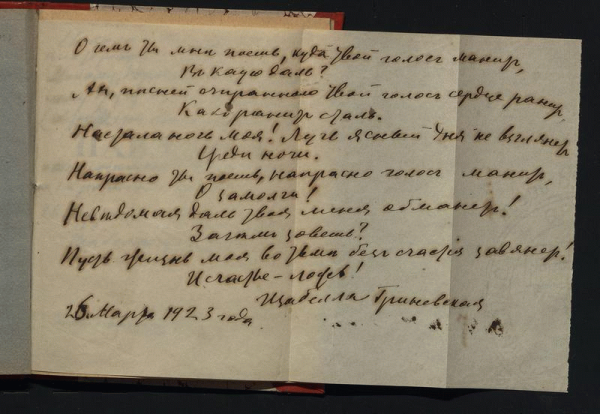 О чемъ ты мнѣ поешь, куда твой голосъ манит,
Въ какую даль?
Ах, пѣсней отравного твой голосъ сердце ранит,
Какъ ранит сталь.
Настала ночь моя! Лучъ ясный дня не взглянет
Среди ночи.
Напрасно ты поешь, напрасно голосъ манит,
О замолчи!
Невѣдомая даль твоя меня обманет!
Зачѣмъ зовешь?
Пусть жизнь моя во тьмѣ безъ счастья завянет!
И счастье - ложь!
Изабелла Гриневская
26 Марта 1923 года.